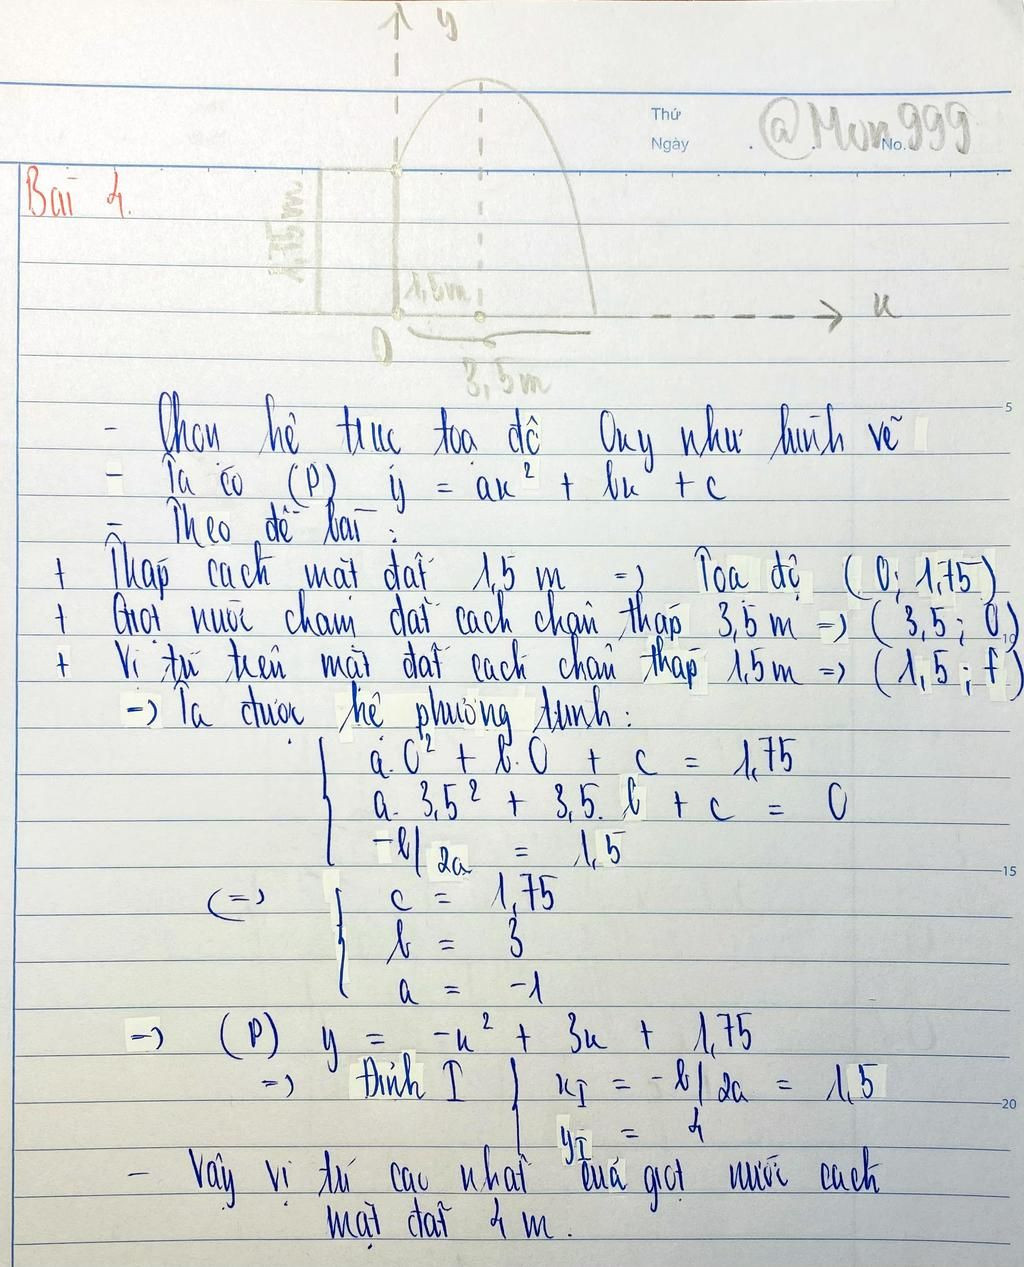 y
Thứ
Ngày
No.
@Mon999
Bài 4.
1,75m
1,5m
x
O
3,5m
5
- Chọn hệ trục tọa độ Oxy như hình vẽ
- Ta có (P) y = ax² + bx + c
- Theo đề bài :
+ Tháp cách mặt đất 1,5 m => Tọa độ (0; 1,75)
+ Giọt nước chạm đất cách chân tháp 3,5 m => (3,5; 0)
10
+ Vị trí trên mặt đất cách chân tháp 1,5m => (1,5; f)
=> Ta được hệ phương trình :
a.0² + b.0 + c = 1,75
a. 3,5² + 3,5. b + c = 0
-b/2a = 1,5
15
<=> c = 1,75
b = 3
a = -1
=> (P) y = -x² + 3x + 1,75
=> Đỉnh I xI = -b/2a = 1,5
20
yI = 4
- Vậy vị trí cao nhất của giọt nước cách
mặt đất 4 m.